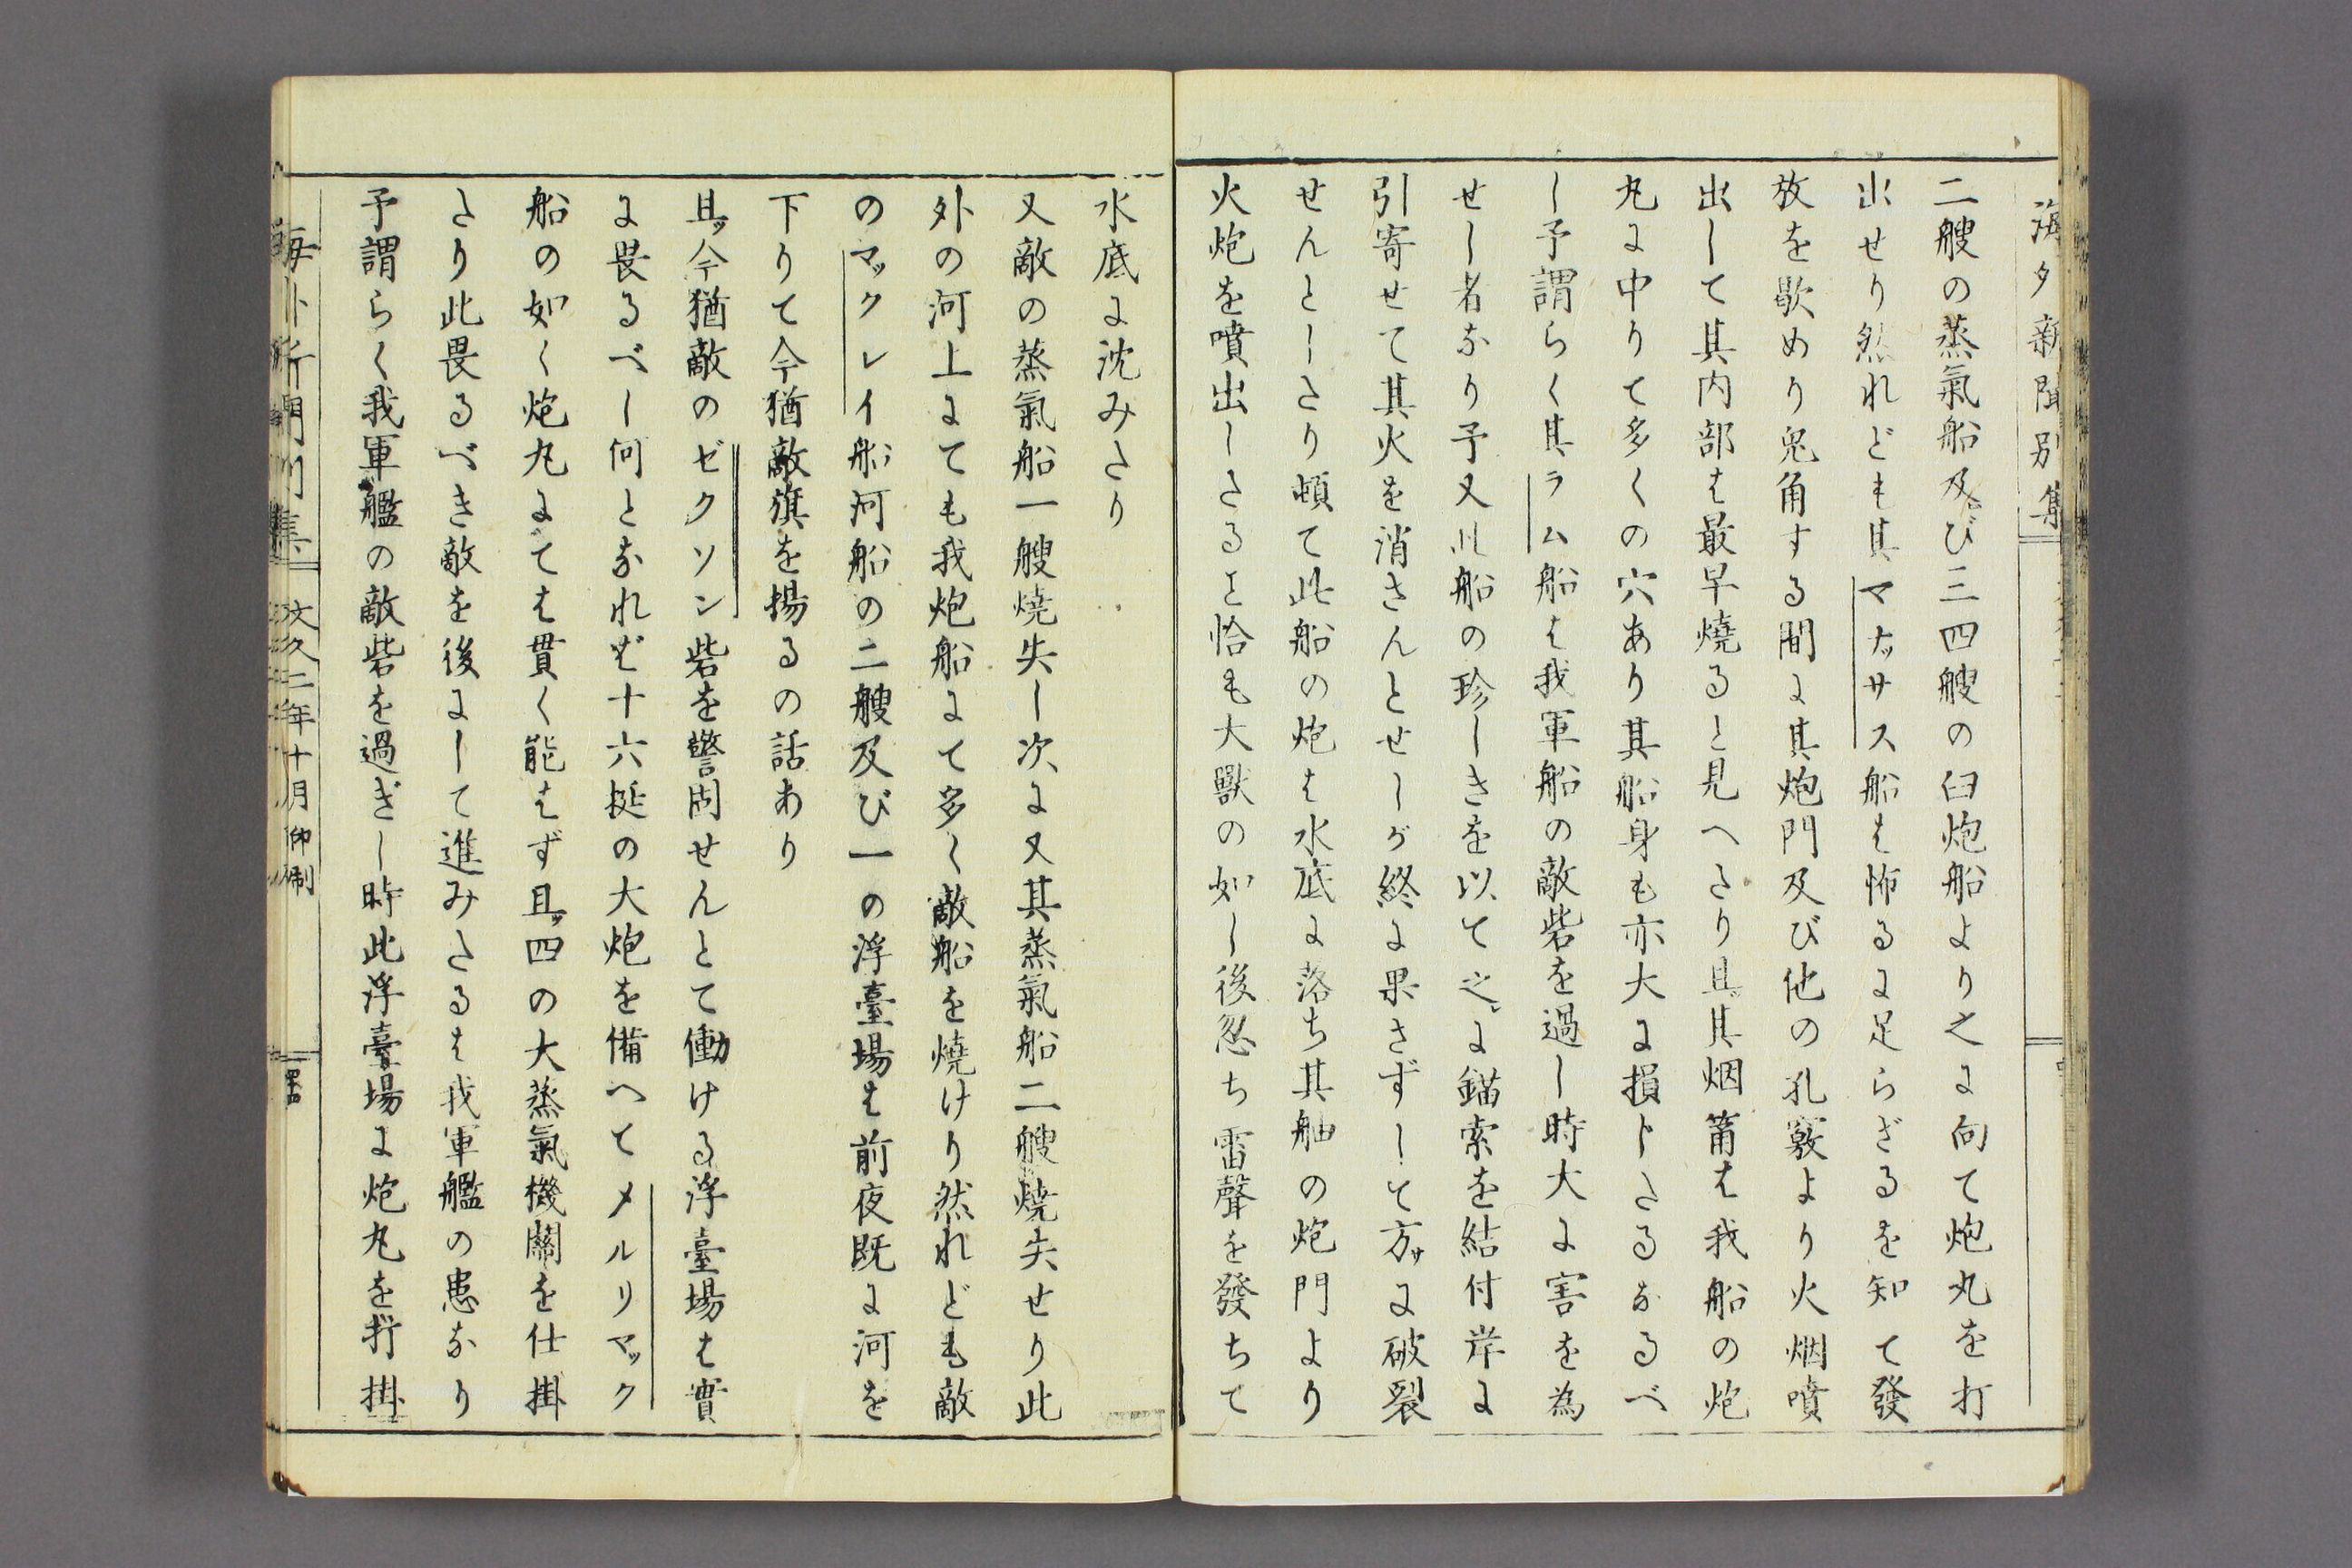 海外新聞別集
二艘の蒸氣船及び三四艘の臼炮船より之に向て炮丸を打
出せり然れども其マナッサス船は怖るに足らざるを知て發
放を歇めり兎角する間に其炮門及び他の孔竅より火烟噴
出して其内部は最早燒ると見へたり且其烟筩は我船の炮
丸に中りて多くの穴あり其船身も亦大に損じたるなるべ
し予謂らく其ラム船は我軍船の敵砦を過し時大に害を為
せし者なり予又此船の珍しきを以て之に錨索を結付岸に
引寄せて其火を消さんとせしが終に果さずして方サに破裂
せんとしたり頓て此船の炮は水底に落ち其舳の炮門より
火炮を噴出したること恰も大獸の如し後忽ち雷聲を發ちて
水底に沈みたり
又敵の蒸氣船一艘燒失し次に又其蒸氣船二艘燒失せり此
外の河上にても我炮船にて多く敵船を燒けり然れども敵
のマックレイ船河船の二艘及び一の浮臺場は前夜既に河を
下りて今猶敵旗を揚るの話あり
且ッ今猶敵のゼクソン砦を警固せんとて働ける浮臺場は實
に畏るべし何となれば十六挺の大炮を備へてメルリマック
船の如く炮丸にては貫く能はず且ッ四の大蒸氣機關を仕掛
たり此畏るべき敵を後にして進みたるは我軍艦の患なり
予謂らく我軍艦の敵砦を過ぎし時此浮臺場に炮丸を打掛
海外新聞別集 文久二年十月仰制